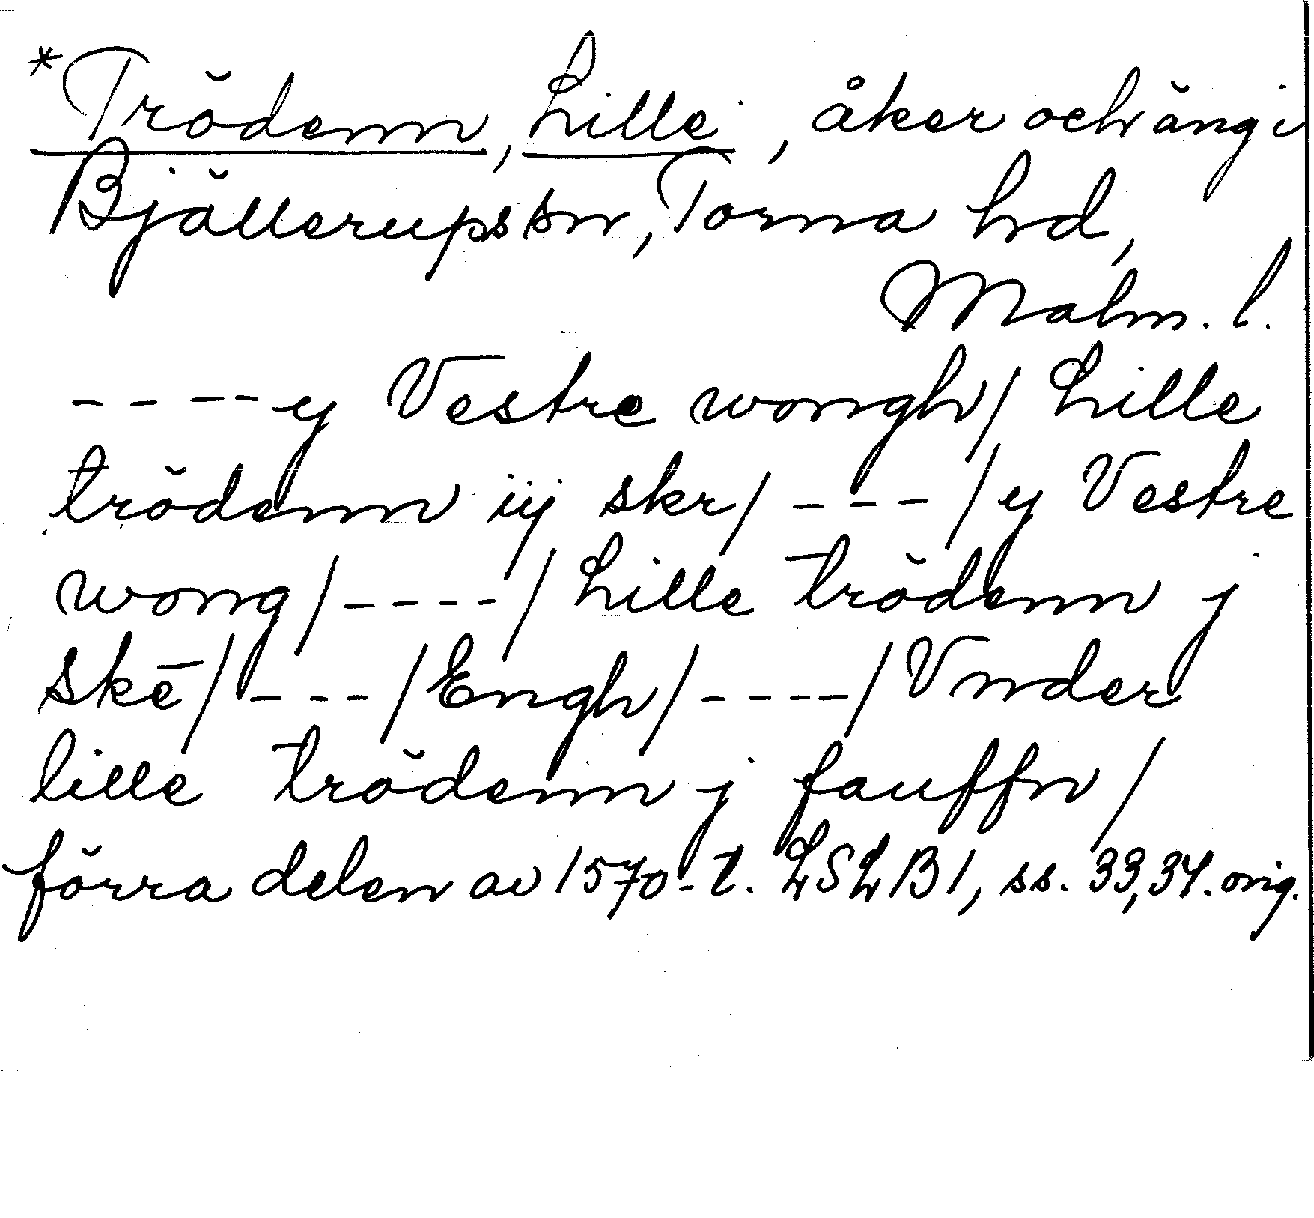 *Trödenn, Lille, åker och äng i
Bjällerups sn, Torna hd,
Malm. l.
---- y Vestre wongh/ Lille
trödenn iij skr/ ---/ y Vestre
wong/ ----/ Lille trödenn j
skē/ ---/ Engh/ ----/ Vnder
lille trödenn j fauffn/
förra delen av 1570-t. LSLB 1, ss. 33, 34. orig.